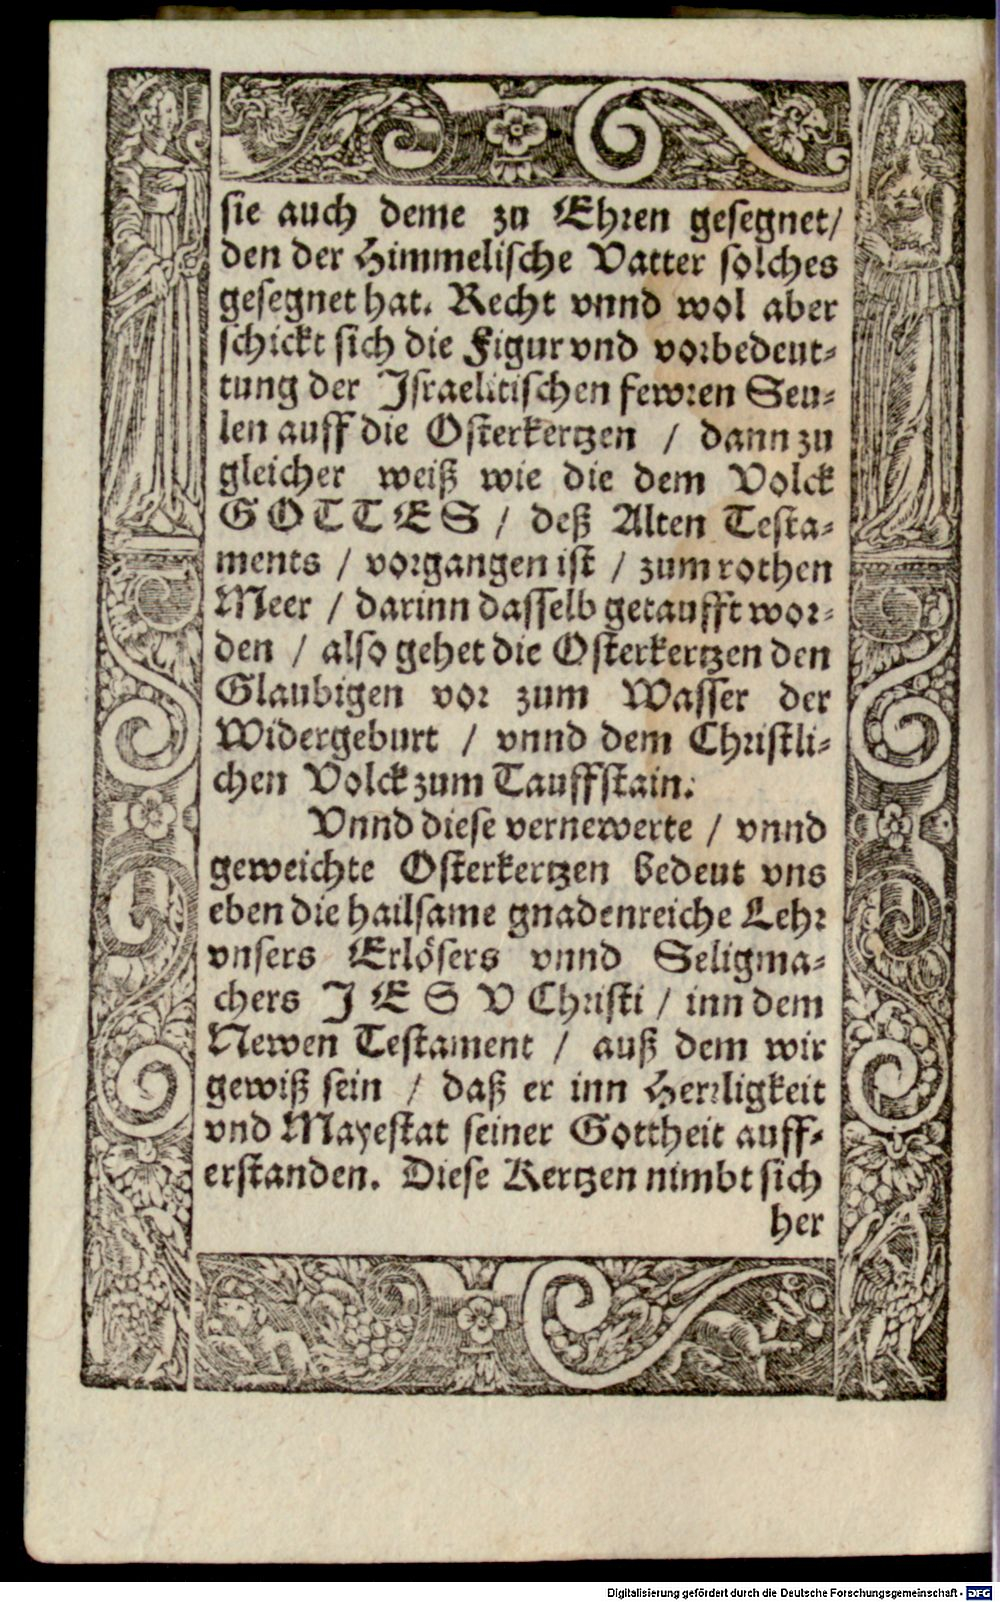 sie auch deme zu Ehren gesegnet/
den der Himmelische Vatter solches
gesegnet hat. Recht vnnd wol aber
schickt sich die Figur vnd vorbedeut-
tung der Israelitischen fewren Seu-
len auff die Osterkertzen / dann zu
gleicher weiß wie die dem Volck
GOTTES / deß Alten Testa-
ments / vorgangen ist / zum rothen
Meer / darinn dasselb getaufft wor-
den / also gehet die Osterkertzen den
Glaubigen vor zum Wasser der
Widergeburt / vnnd dem Christli-
chen Volck zum Tauffstain.
Vnnd diese vernewerte / vnnd
geweichte Osterkertzen bedeut vns
eben die hailsame gnadenreiche Lehr
vnsers Erlösers vnnd Seligma-
chers JESV Christi / inn dem
Newen Testament / auß dem wir
gewiß sein / daß er inn Herrligkeit
vnd Mayestat seiner Gottheit auff-
erstanden. Diese Kertzen nimbt sich
her
Digitalisierung gefördert durch die Deutsche Forschungsgemeinschaft - DFG